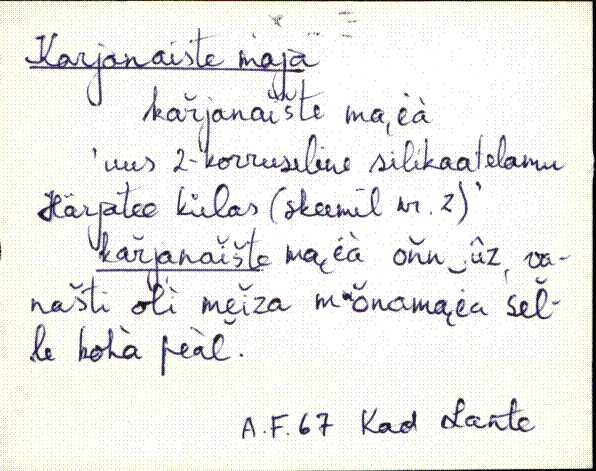 Karjanaiste maja
kařjanaǐšte ma̭ėà
'uus 2-korruseline silikaatelamu
Härjatee külas (skeemil nr. 2)'
kařjanaǐšte ma̭ėà oňn ûz, va-
našti oľi mĕiza mṷŏnama̭ėa šel-
le kohà peàl.
A.F. 67 Kad Lante